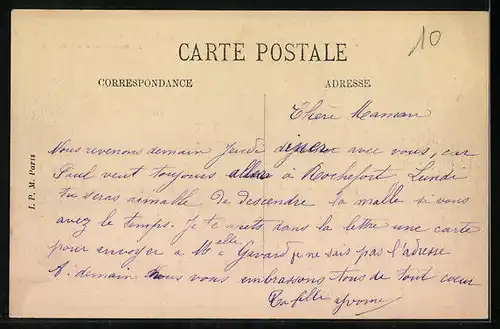 10
CARTE POSTALE
CORRESPONDANCE
ADRESSE
Chère Maman
Nous revenons demain Jeudi diner avec vous, car
Paul veut toujours aller à Rochefort Lundi
tu seras aimable de descendre la malle si vous
avez le temps. Je te mets dans la lettre une carte
pour envoyer a Melle Gavard je ne sais pas l'adresse
A. demain nous vous embrassons tous de tout coeur
Ta fille Yvonne
I. P. M. Paris